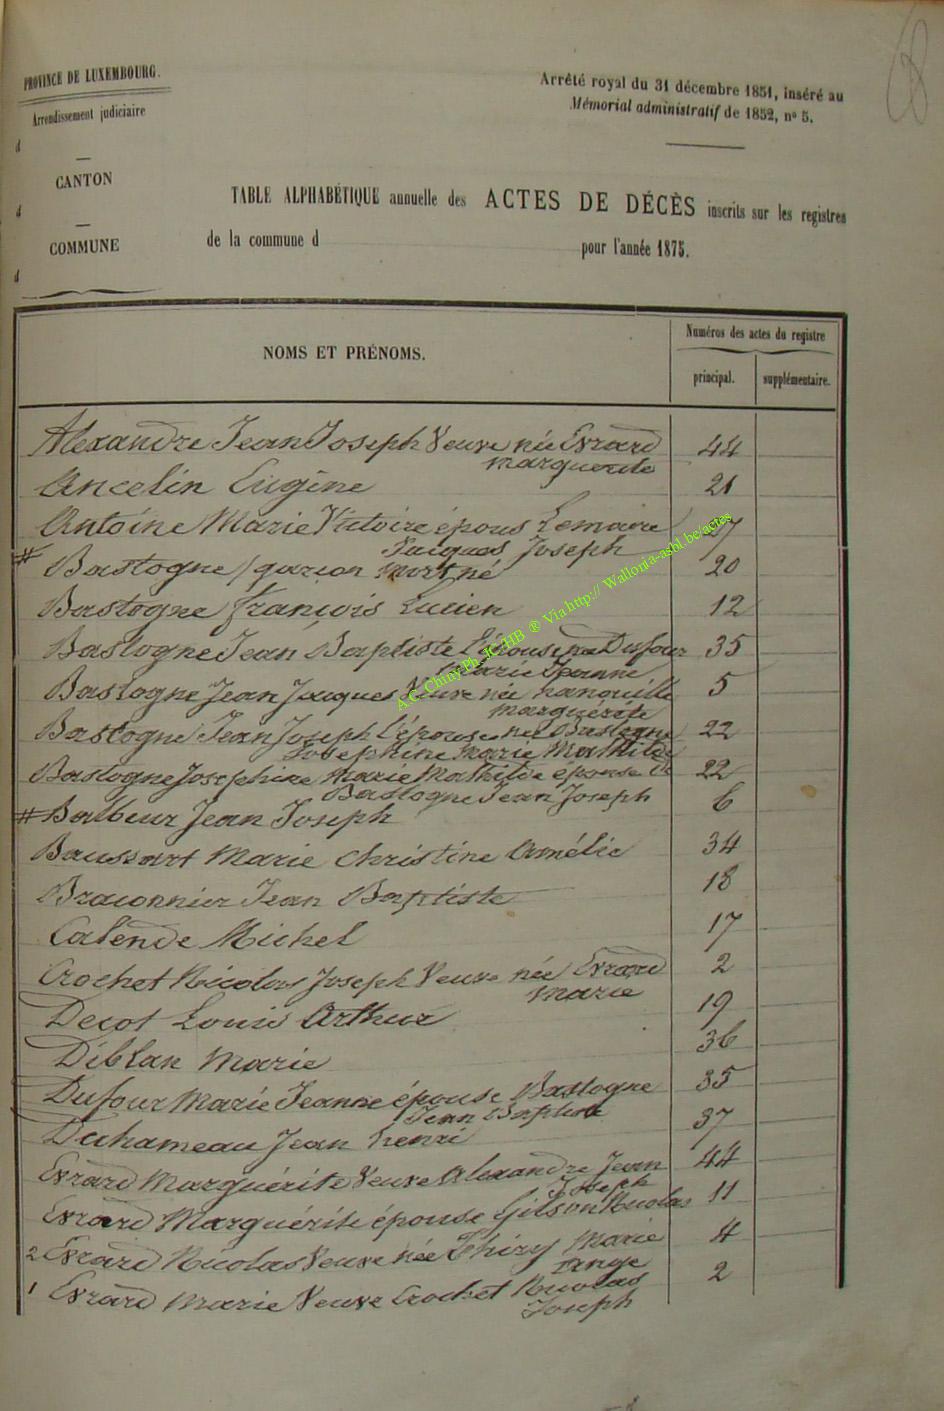 PROVINCE DE LUXEMBOURG.
Arrondissement judiciaire
d
CANTON
d
COMMUNE
d
Arrêté royal du 31 décembre 1851, inséré au
Mémorial administratif de 1852, nº 5.
TABLE ALPHABÉTIQUE annuelle des ACTES DE DÉCÈS inscrits sur les registres
de la commune d pour l'année 1875.
NOMS ET PRÉNOMS.
Numéros des actes du registre
principal. supplémentaire.
Alexandre Jean Joseph Veuve née Evrard 44
marguerite
Ancelin Eugène 21
Antoine Marie Victoire épous Lemaire 7
Jacques Joseph
# Bastogne / garcon mort né 20
Bastogne François Lucien 12
Bastogne Jean Baptiste l'épouse née Dufour 35
Marie Jeanne
Bastogne Jean Jacques Veuve née hanouille 5
marguérite
Bastogne Jean Joseph l'épouse née Bastogne 22
Josephine Marie Mathilde
Bastogne Josephine Marie Mathilde épouse de 22
Bastogne Jean Joseph
# Balbeur Jean Joseph 6
Baussart Marie Christine Amélie 34
Braconnier Jean Baptiste 18
Calende Michel 17
Crochet Nicolas Joseph Veuve née Evrard 2
marie
Decot Louis Arthur 19
Diblan Marie 36
Dufour Marie Jeanne épouse Bastogne 35
Jean Baptiste
Duhameau Jean henri 37
Evrard Marguérite Veuve Alexandre Jean 44
Joseph
Evrard Marguérite épouse Gilson Nicolas 11
2 Evrard Nicolas Veuve née Thiry Marie 4
ange
1 Evrard Marie Veuve Crochet Nicolas 2
Joseph
A.C. Chiny-Ph. JC. HB ® Via http:// Wallonia-asbl.be/actes